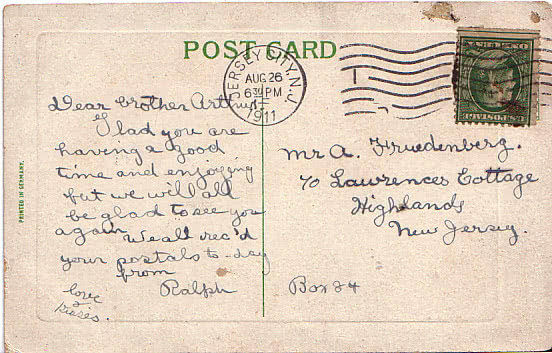 POST CARD
JERSEY CITY, N.J.
AUG 26
630 PM
1911
Dear brother Arthur:
Glad you are
having a good
time and enjoying
but we will all
be glad to see you
again We all rec'd
your postals to-day
from
Ralph
love
&
kisses.
PRINTED IN GERMANY.
Mr A. Fruedenberg.
70 Lawrences Cottage
Highlands
New Jersey.
Box 24